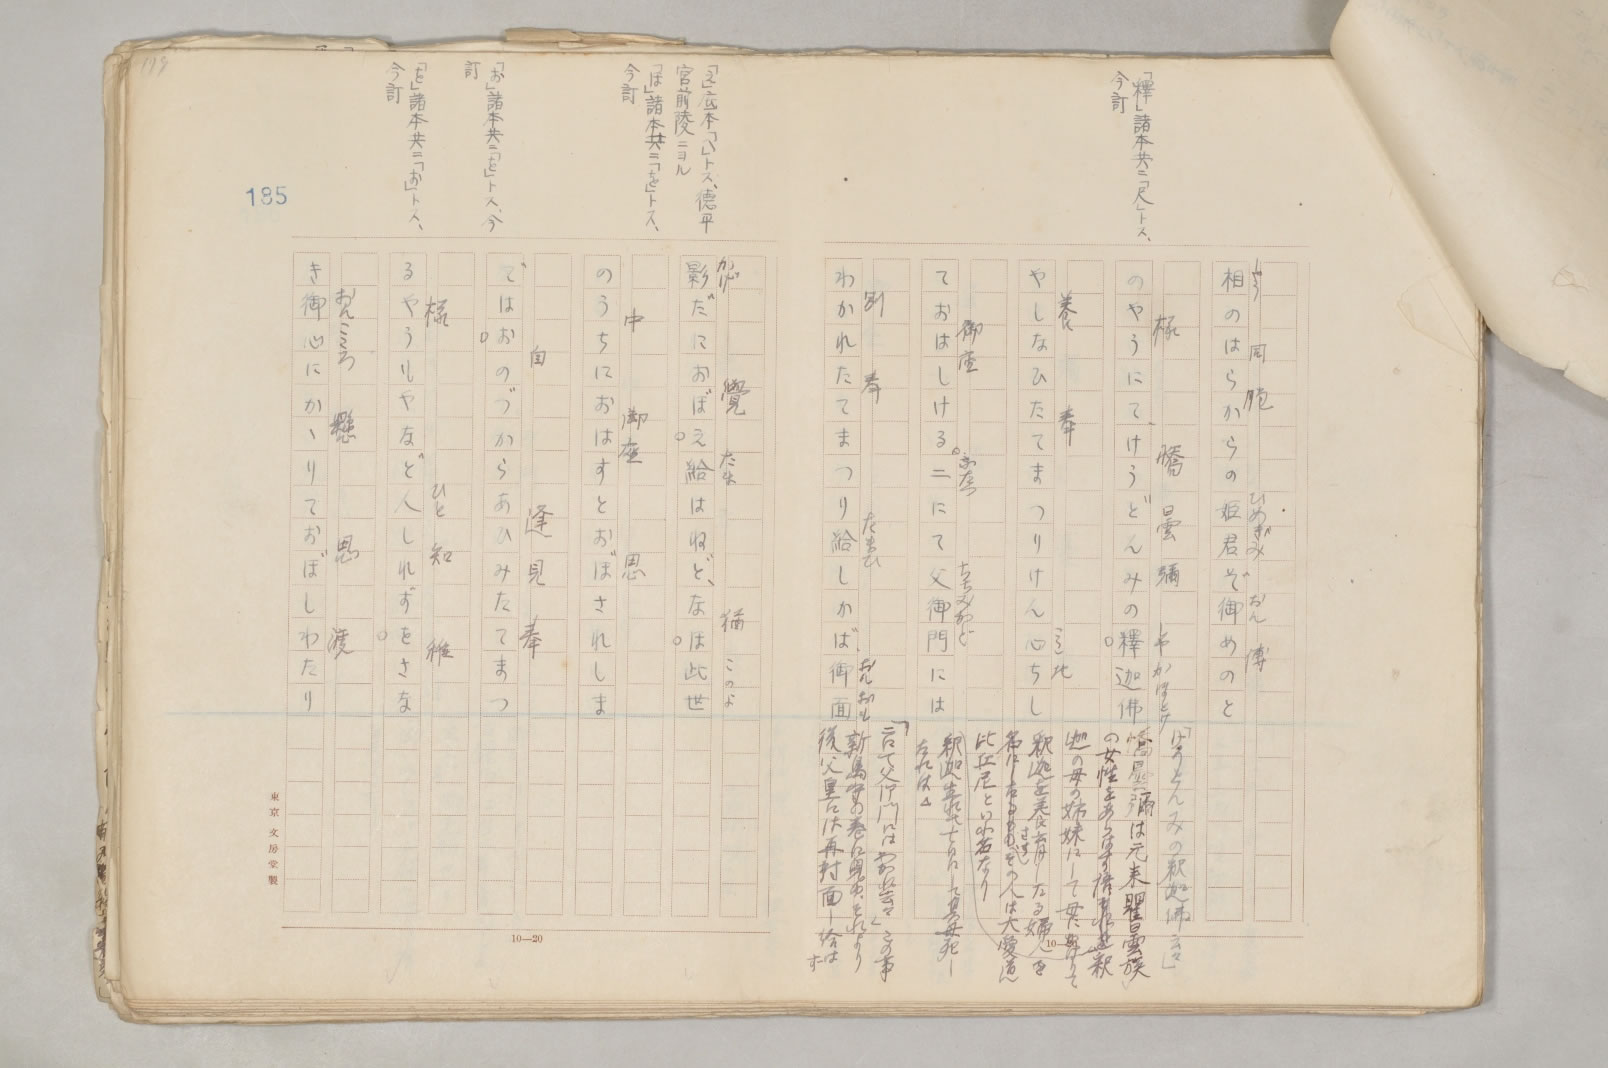 「釋」諸本共ニ「尺」トス、
今訂
じやう 同 胞 ひめぎみ おん 傅
相のはらからの姫君ぞ御めのと
様 憍 曇 彌 しやかほとけ
のやうにて、けうどんみの釋迦佛
養 奉 ここ地
やしなひたてまつりけん心ちし
御座 ふたつ ちちみかど
ておはしける。二にて父御門には
別 奉 たまひ おんおも
わかれたてまつり給しかば、御面
「けうどんみの釈迦佛云々」
憍曇彌は元来瞿曇族
の女性をあらはす
迦の母の姉妹にして
釈迦を養育したる婦人を
比丘尼といふ名なり
「二にて父御門にはわかれ云々」この事
新島守の巻に見ゆ、それより
後父皇には再対面し給は
ず
「え」底本「へ」トス、徳平
宮前陵ニヨル
「ほ」諸本共ニ「を」トス、
今訂
「お」諸本共ニ「を」トス、今
訂
「を」諸本共ニ「お」トス、
今訂
かげ 覺 たま 猶 このよ
影だにおぼえ給はねど、なほ此世
中 御座 思
のうちにおはすとおぼされしま
自 逢 見 奉
ではおのづからあひみたてまつ
様 ひと 知 稚
るやうもやなど人しれずをさな
おんこころ 懸 思 渡
き御心にかゝりておぼしわたり
185
10—20
東京 文房堂製